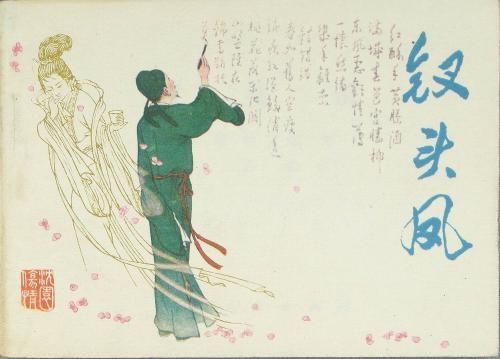 钗头凤
红酥手黄縢酒
满城春色宫墙柳
东风恶欢情薄
一怀愁绪
错错错
春如旧人空瘦
泪痕红浥鲛绡透
桃花落闲池阁
山盟虽在
锦书难托
莫
沈園
傷情